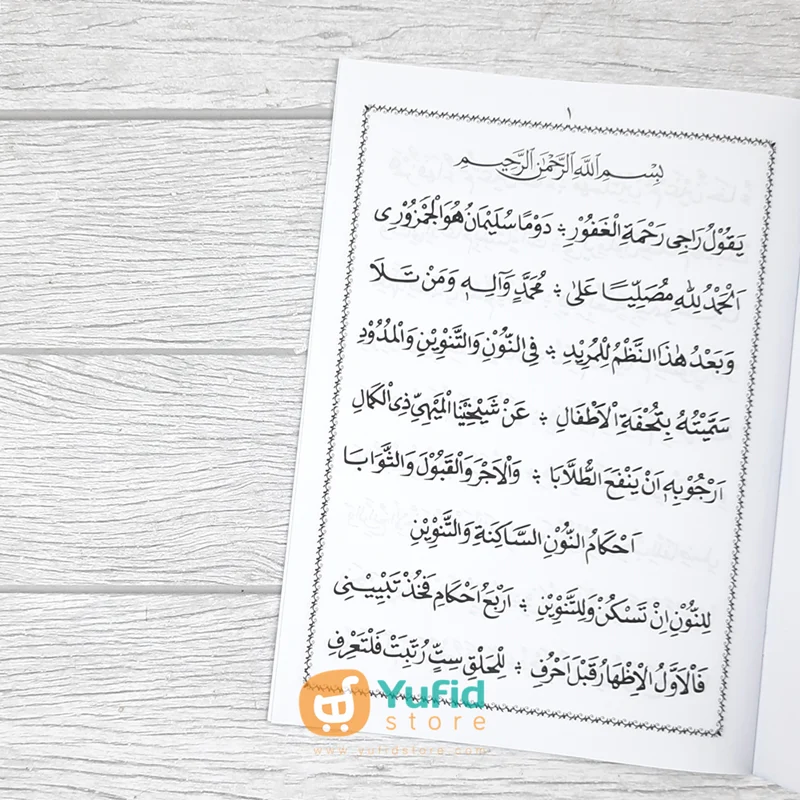 ١
بِسْمِ اللهِ الرَّحْمٰنِ الرَّحِيْمِ
يَقُوْلُ رَاجِى رَحْمَةِ الْغَفُوْرِ ❖ دَوْمًا سُلَيْمَانُ هُوَ الْجَمْزُوْرِى
اَلْحَمْدُ لِلّٰهِ مُصَلِّيًا عَلَى ❖ مُحَمَّدٍ وَآلِهِ وَمَنْ تَلَا
وَبَعْدُ هٰذَا النَّظْمُ لِلْمُرِيْدِ ❖ فِى النُّوْنِ وَالتَّنْوِيْنِ وَالْمُدُوْدِ
سَمَّيْتُهُ بِتُحْفَةِ الْاَطْفَالِ ❖ عَنْ شَيْخِنَا الْمَيْهِىِّ ذِى الْكَمَالِ
اَرْجُوْ بِهِ اَنْ يَنْفَعَ الطُّلَّابَا ❖ وَالْاَجْرَ وَالْقَبُوْلَ وَالثَّوَابَا
اَحْكَامُ النُّوْنِ السَّاكِنَةِ وَالتَّنْوِيْنِ
لِلنُّوْنِ اِنْ تَسْكُنْ وَلِلتَّنْوِيْنِ ❖ اَرْبَعُ اَحْكَامٍ فَخُذْ تَبْيِيْنِى
فَالْاَوَّلُ الْاِظْهَارُ قَبْلَ اَحْرُفِ ❖ لِلْحَلْقِ سِتٍّ رُتِّبَتْ فَلْتَعْرِفِ
Yufid
store
www.yufidstore.com